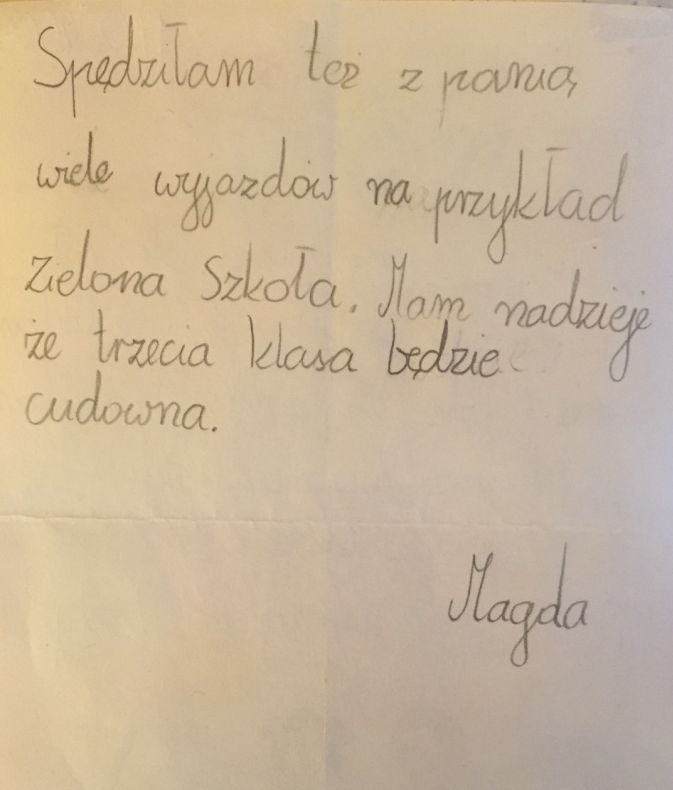 Spędziłam też z panią
wiele wyjazdów na przykład
Zielona Szkoła. Mam nadzieję
że trzecia klasa będzie
cudowna.
Magda